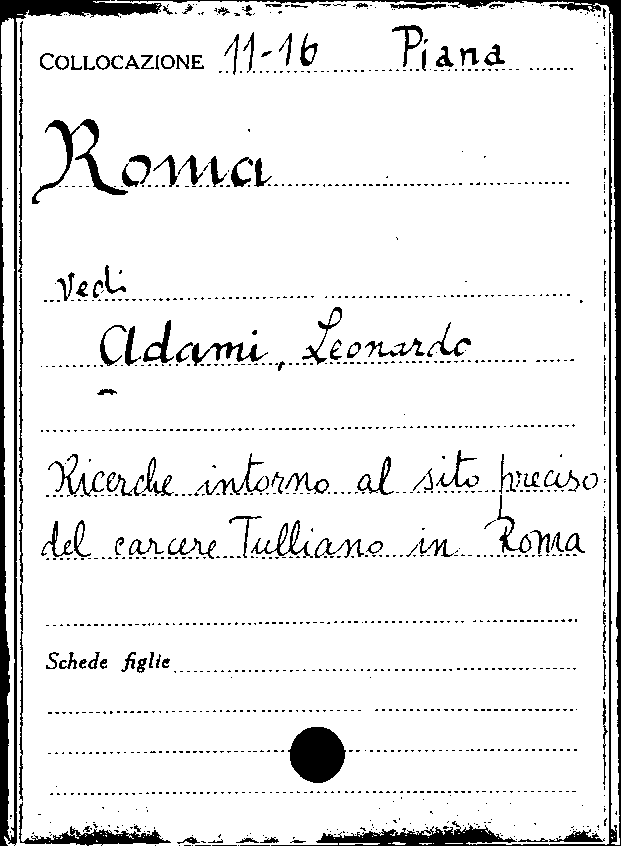 COLLOCAZIONE 11-16 Piana
Roma
vedi
Adami, Leonardo
Ricerche intorno al sito preciso
del carcere Tulliano in Roma
Schede figlie